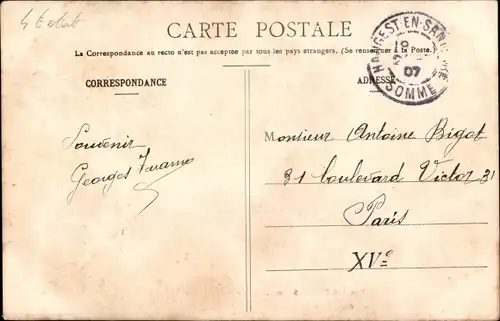 CARTE POSTALE
La Correspondance au recto n'est pas acceptée par tous les pays étrangers, (Se renseigner à la Poste.)
CORRESPONDANCE
ADRESSE
HANGEST-EN-SANTERRE
07
SOMME
Souvenir
Georges
Monsieur Antoine Bigot
31 boulevard Victor 31
Paris
XVe